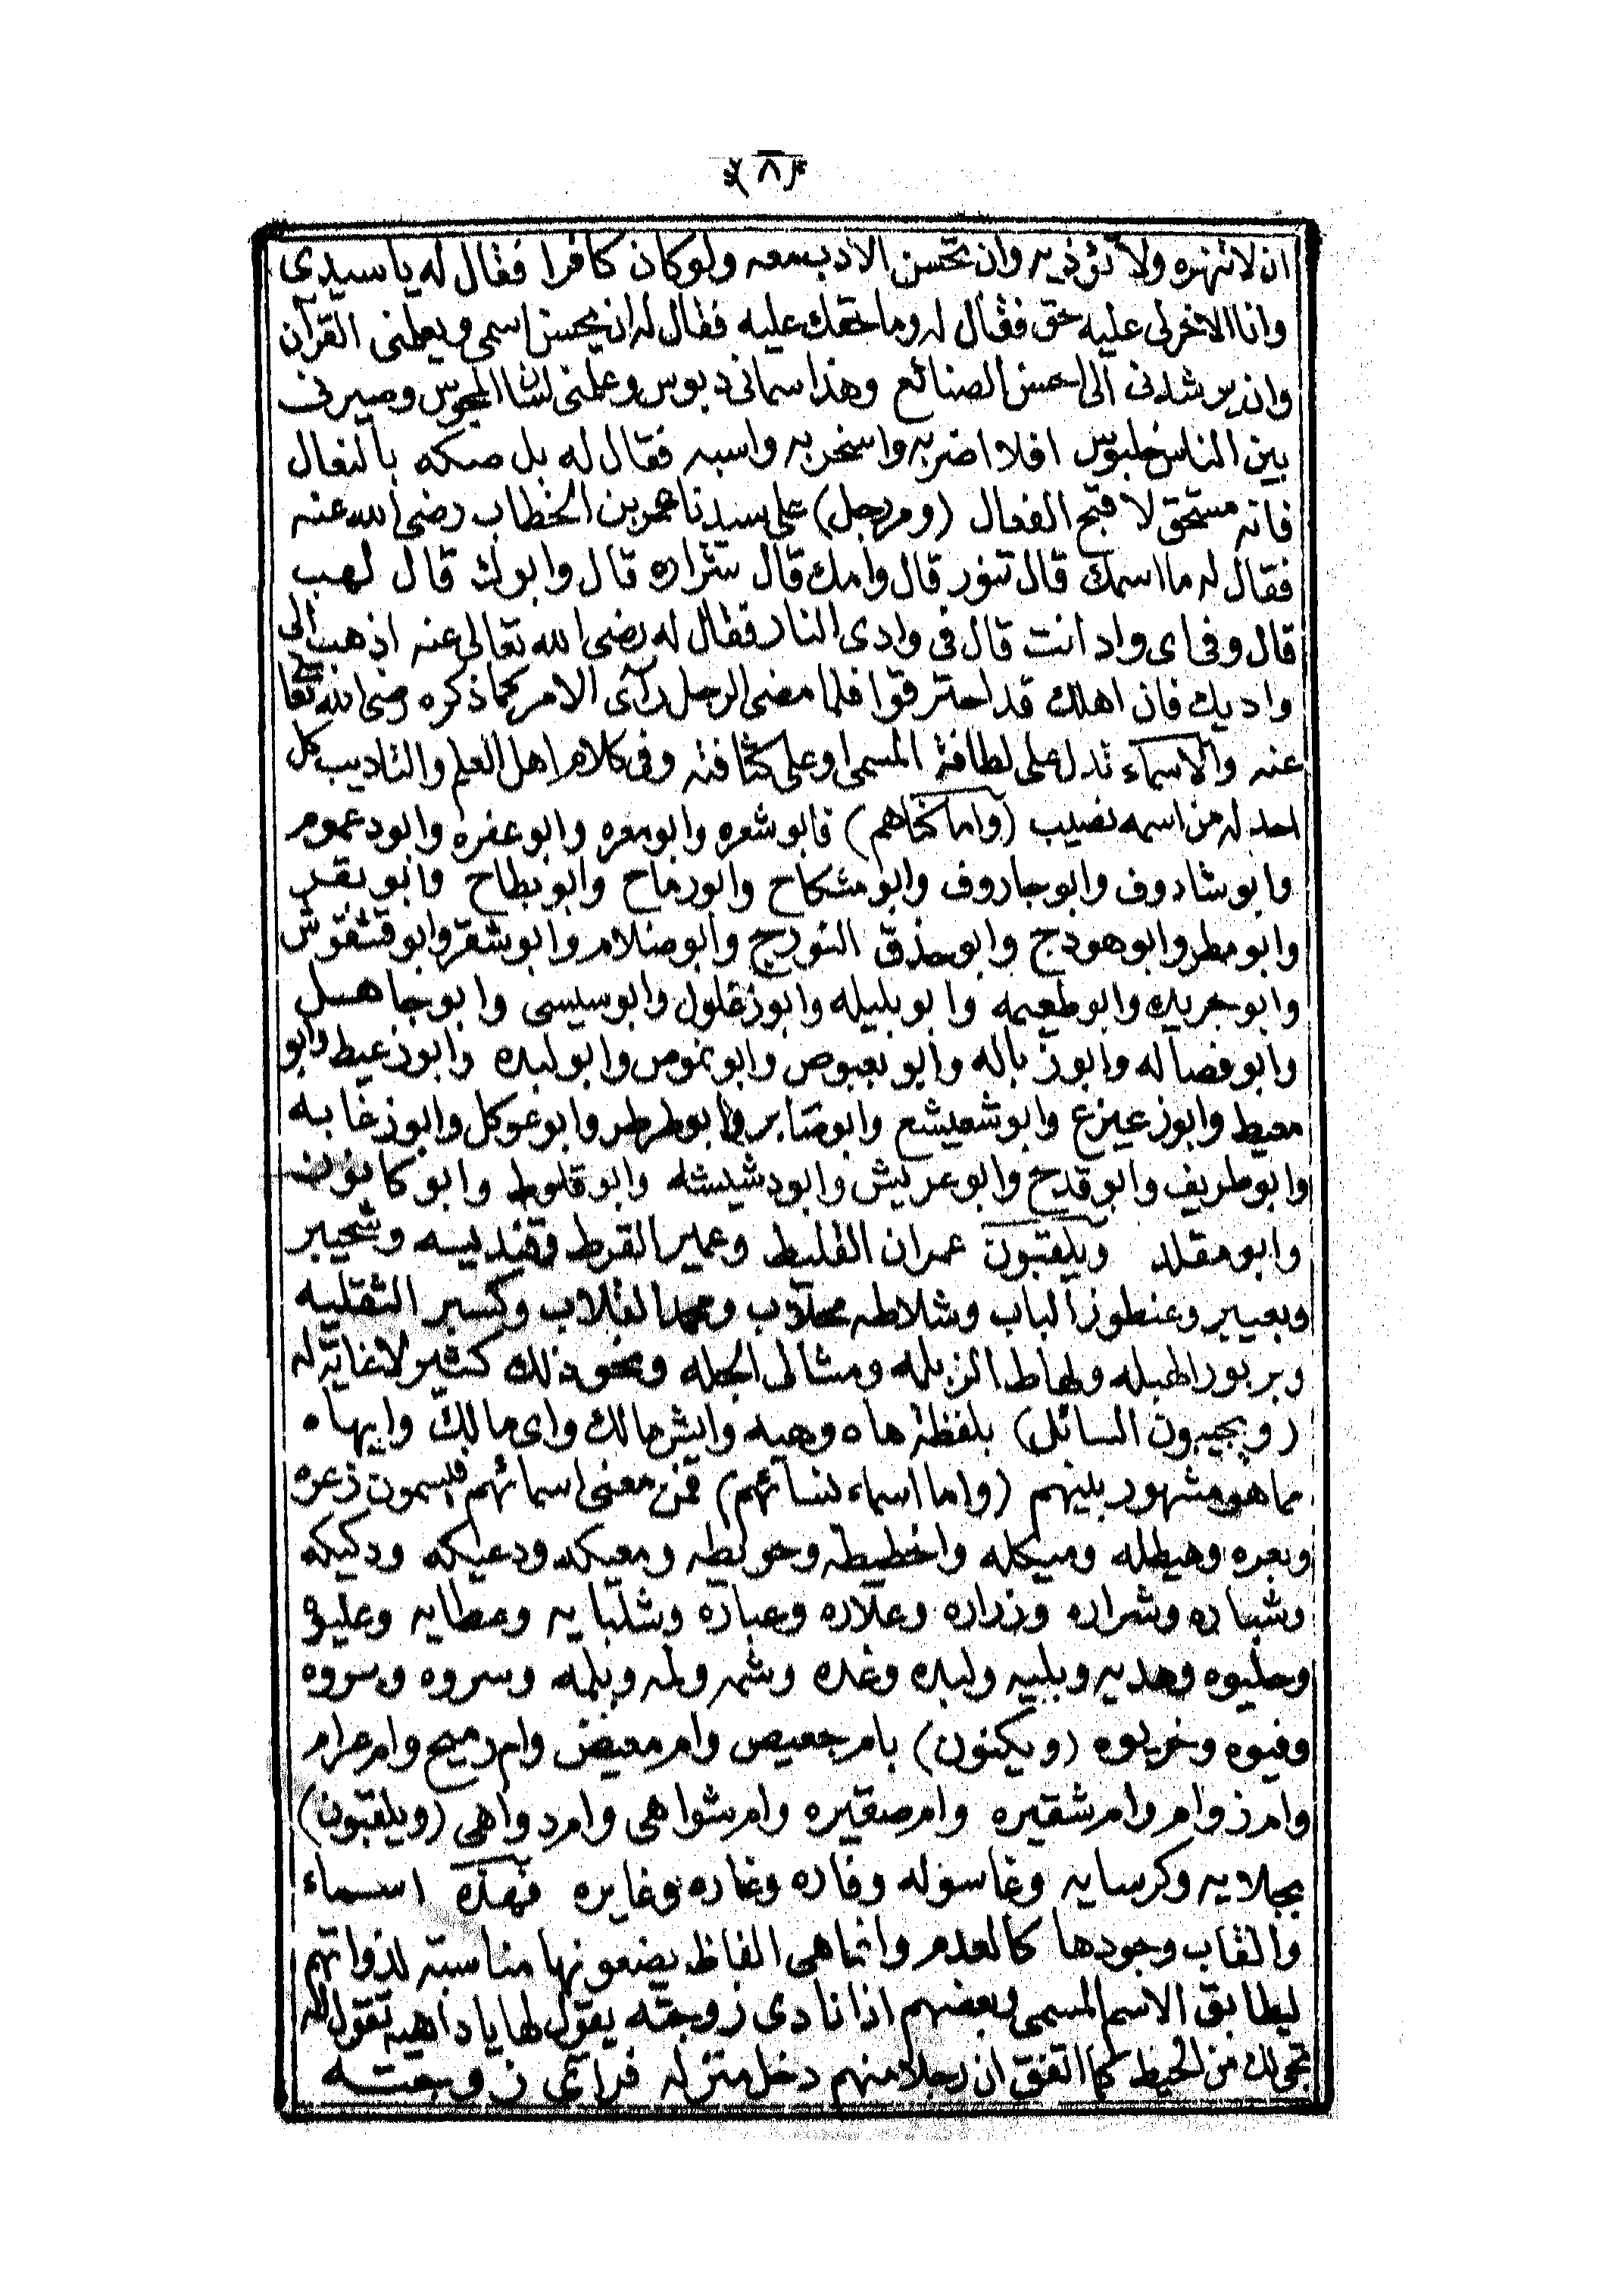 ٨
ان لا تنهره ولا تؤذيه وان تحسن الادب معه ولو كان كافرا فقال له يا سيدى
وانا الاخر لى عليه حق فقال له وما حقك عليه فقال له ان يحسن اسمى ويعلمنى القرآن
وان يرشدنى الى احسن الصنائع وهذا سمانى دبوس وعلمنى لسان المجوس وصيرنى
بين الناس خلبوس افلا اضربه واسخر به واسبه فقال له بل صكه بالنعال
فانه مستحق لا قبح الفعال (ومر رجل) على سيدنا عمر بن الخطاب رضى الله عنه
فقال له ما اسمك قال تنور قال وامك قال شراره قال وابوك قال لهب
قال وفى اى واد انت قال فى وادى النار فقال له رضى الله تعالى عنه اذهب الى
واديك فان اهلك قد احترقوا فلما مضى الرجل رآى الامر كما ذكره رضى الله تعالى
عنه والاسماء تدل على لطافة المسمى وعلى كثافته وفى كلام اهل العلم والتاديب كل
احد له من اسمه نصيب (واما كناهم) فابو شعره وابو معره وابو عفره وابو دعموم
وابو شادوف وابو جاروف وابو مشكاح وابو رماح وابو بطاح وابو بقر
وابو مطر وابو هودج وابو حذق النورج وابو ضلام وابو شقر وابو قشقوش
وابو جريده وابو طعيمه وابو بليله وابو زغلول وابو سيسى وابو جاهل
وابو فصاله وابو زباله وابو بعبوص وابو نموس وابو لبده وابو زعيط وابو
معيط وابو زعيزع وابو شعيشع وابو صابر وابو طرطر وابو عوكل وابو زغابه
وابو طريف وابو قدح وابو عريش وابو دشيشه وابو قلوط وابو كانون
وابو مقلد ويلقبون عمران الغليط وعمير القرط وقنديسه وشحيبر
وبعيبر وعنطوز الباب وشلاطه محلاب ومحمد الغلاب وكسبر الثقليه
وبربور الهبله ولهاط الزبله ومشالى الجله ونحو ذلك كثير لا غاية له
(ويجيبون السائل) بلفظة هاه وهيه وايش مالك واى مالك وايهاه
مما هو مشهور بينهم (واما اسماء نسائهم) فمن معنى اسمائهم فيسمون زعره
وبعره وهيطله وميكله واخطيطه وحويطه ومعيكه ودعيكه ودكيكه
وشباره وشراره وزراره وعلاره وعباره وشلبايه وعطايه وعليوه
وحليوه وهديه وبلبيه ولبده وغده وشمه ولمه وبلمه وسروه وبروه
وفيوه وخريوه (ويكنون) بام جعيص وام معيض وام رميح وام حرام
وام زوام وام شقيره وام صقيره وام شواهى وام دواهى (ويلقبون)
بجلايه وكرسايه وغاسوله وفاره وغاره وغايره فهذه اسماء
والقاب وجودها كالعدم وانما هى الفاظ يضعونها مناسبة لذواتهم
ليطابق الاسم المسمى وبعضهم اذا نادى زوجته يقول لها يا داهيه تقول له
تجى لك من الحيط كما اتفق ان رجلا منهم دخل منزله فرآى زوجته